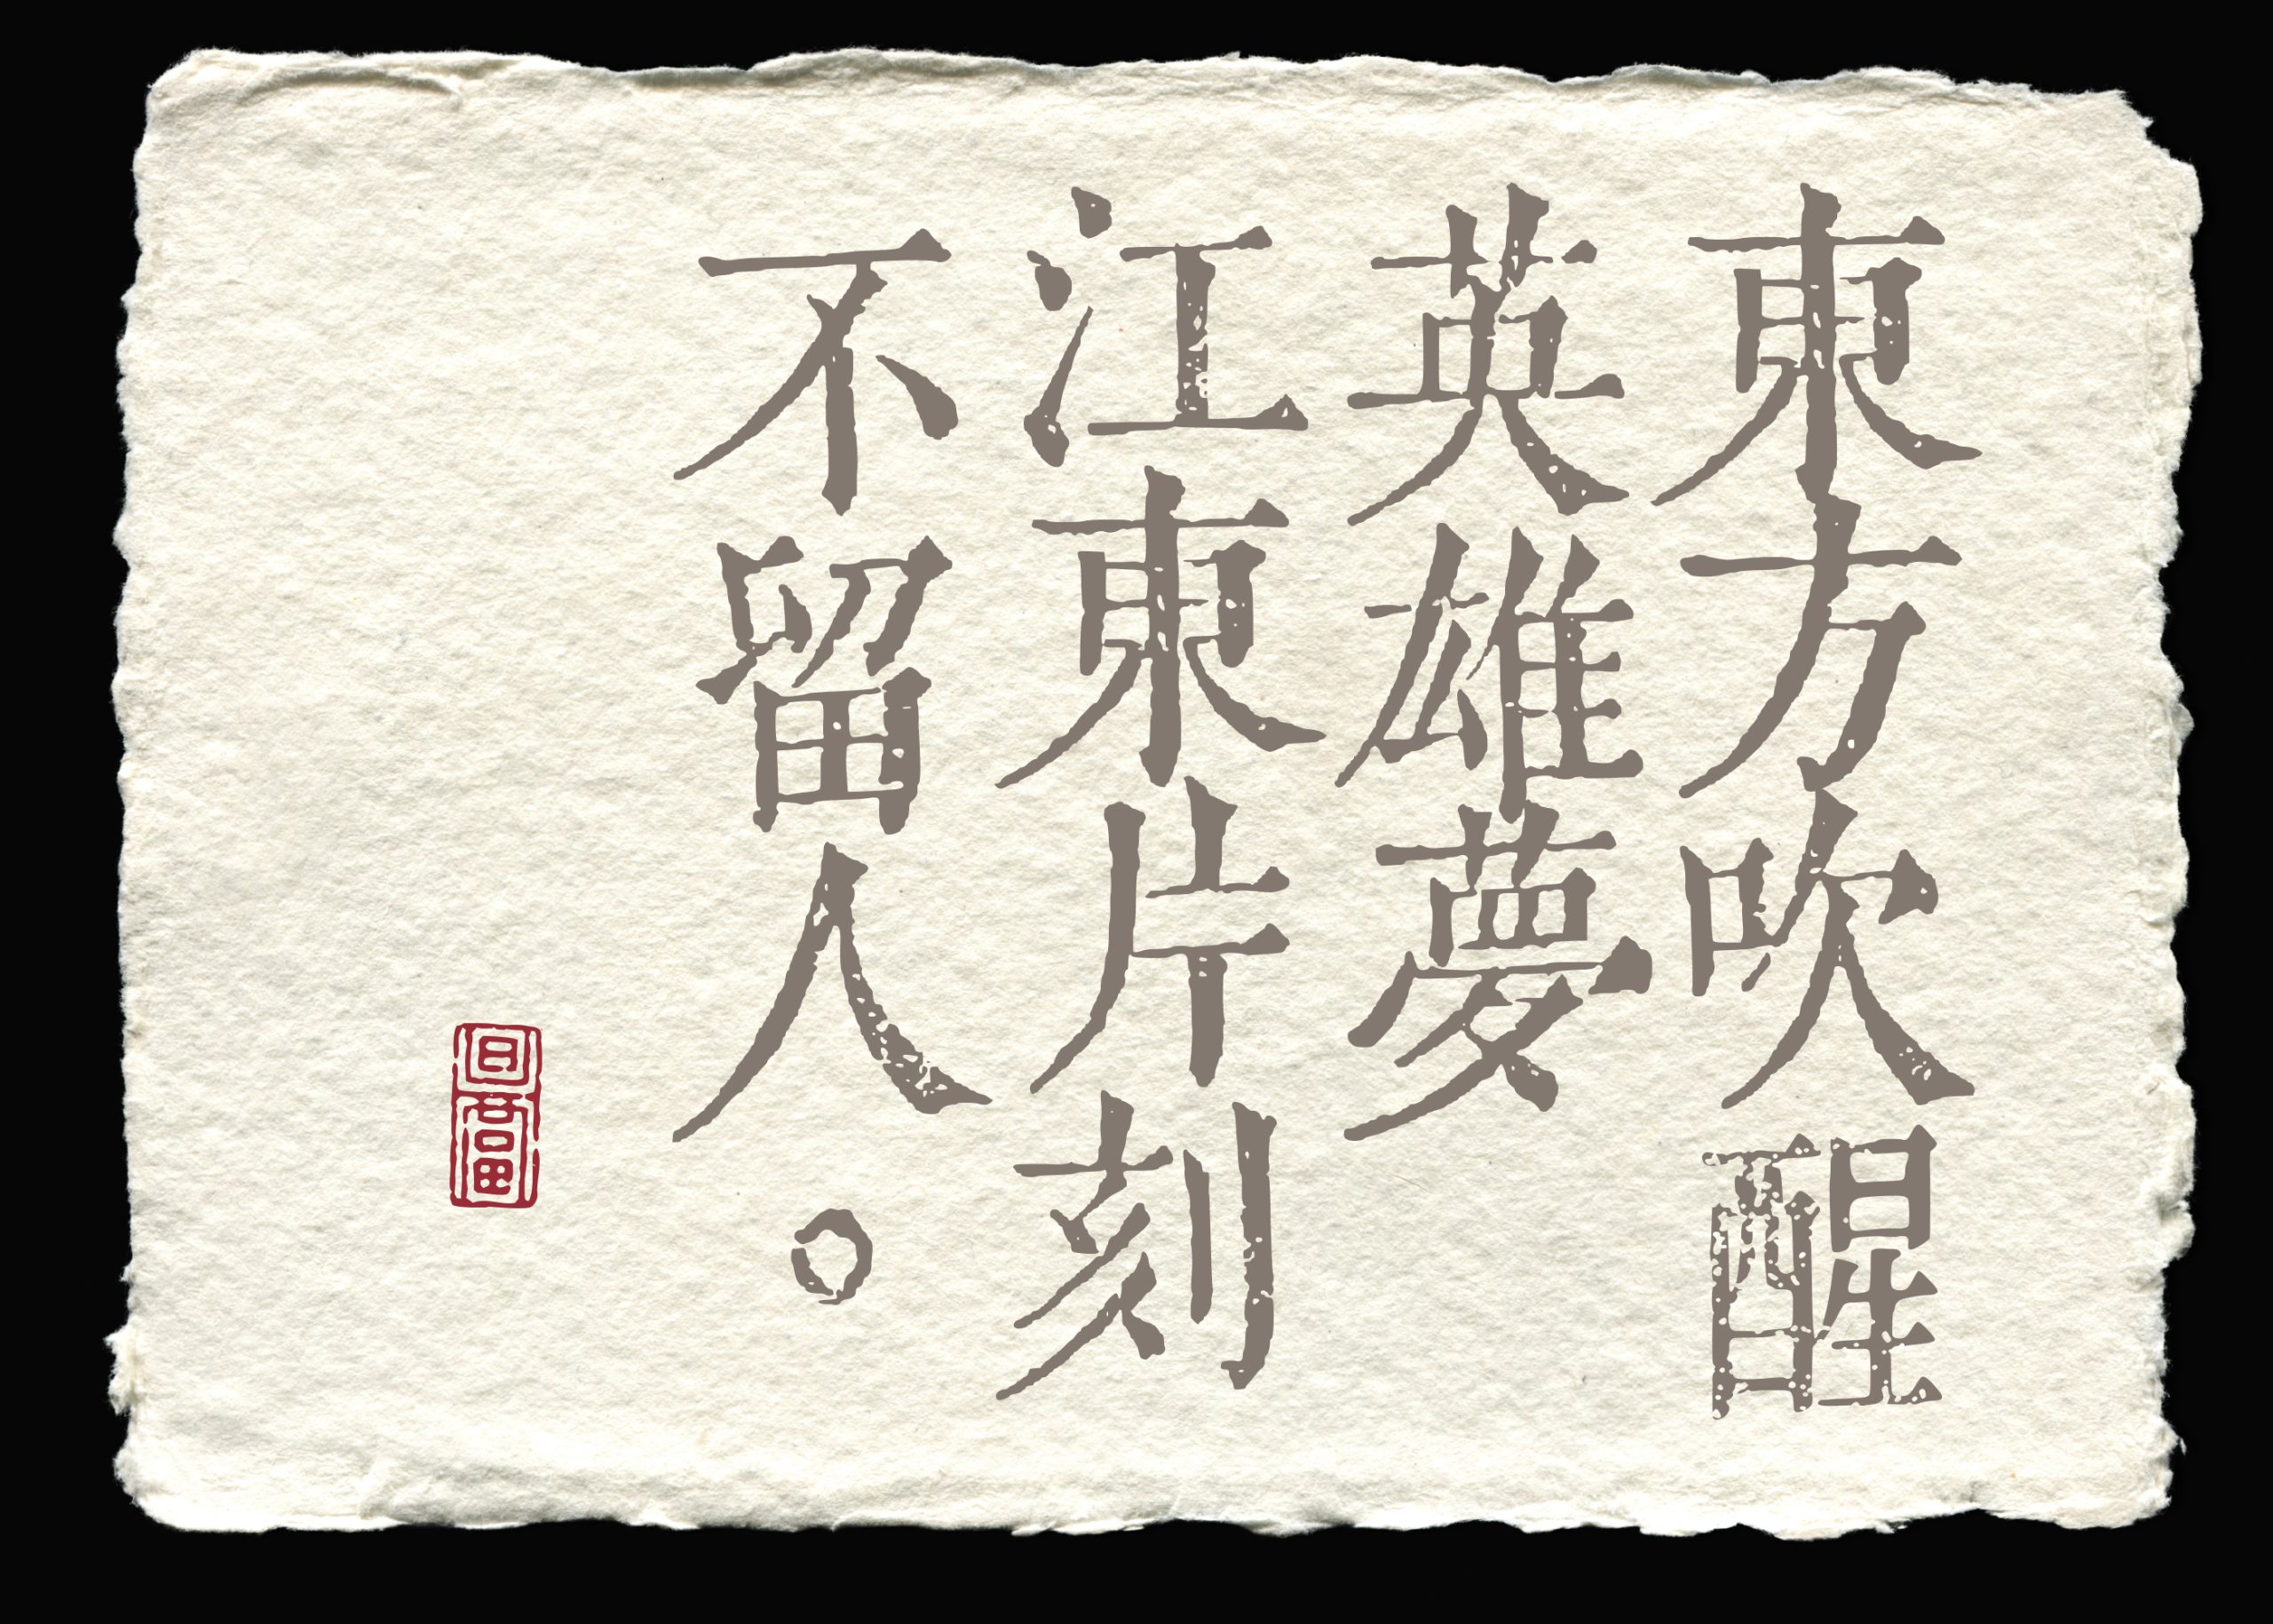 東方吹醒
英雄夢
江東片刻
不留人。